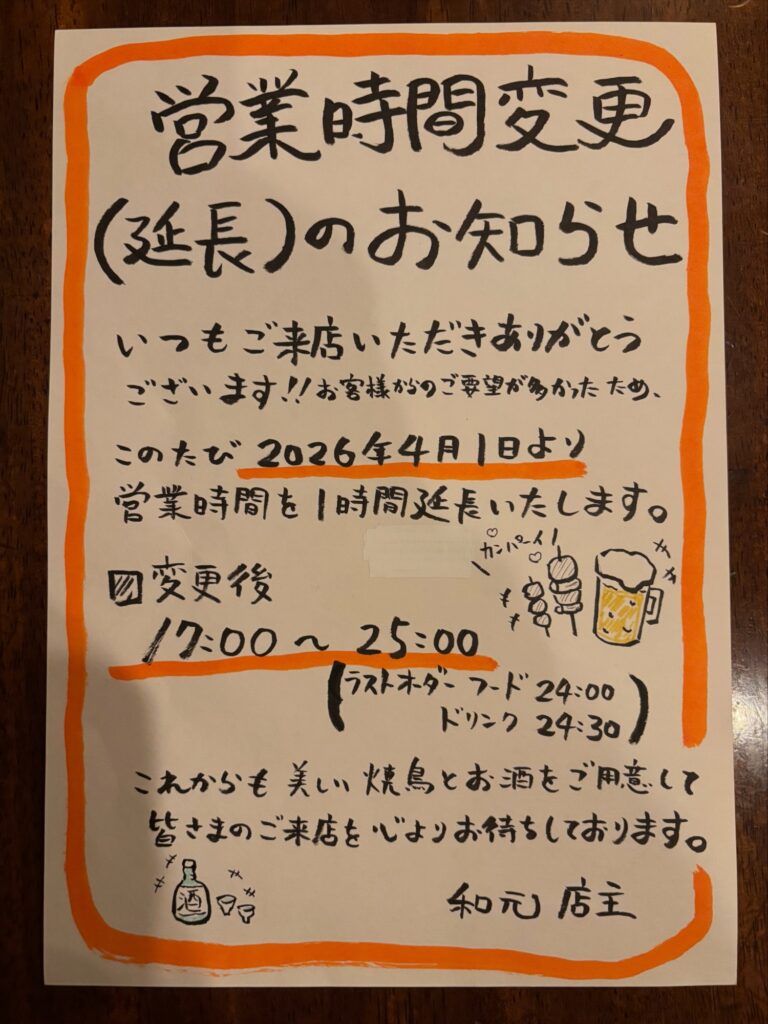 営業時間変更
(延長)のお知らせ
いつもご来店いただきありがとう
ございます!!お客様からのご要望が多かったため、
このたび 2026年4月1日より
営業時間を1時間延長いたします。
カンパーイ!
変更後
17:00～25:00
(ラストオーダー フード 24:00
ドリンク 24:30)
これからも 美しい 焼鳥とお酒をご用意して
皆さまのご来店を心よりお待ちしております。
酒
和元 店主